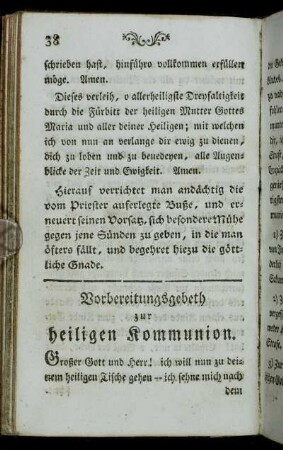 38
schrieben hast, hinführo vollkommen erfüllen
möge. Amen.
Dieses verleih, o allerheiligste Dreyfaltigkeit
durch die Fürbitt der heiligen Mutter Gottes
Maria und aller deiner Heiligen; mit welchen
ich von nun an verlange dir ewig zu dienen,
dich zu loben und zu benedeyen, alle Augen-
blicke der Zeit und Ewigkeit. Amen.
Hierauf verrichtet man andächtig die
vom Priester auferlegte Buße, und er-
neuert seinen Vorsatz, sich besondere Mühe
gegen jene Sünden zu geben, in die man
öfters fällt, und begehret hiezu die gött-
liche Gnade.
Vorbereitungsgebeth
zur
heiligen Kommunion.
Großer Gott und Herr! ich will nun zu dei-
nem heiligen Tische gehen – ich sehne mich nach
dem